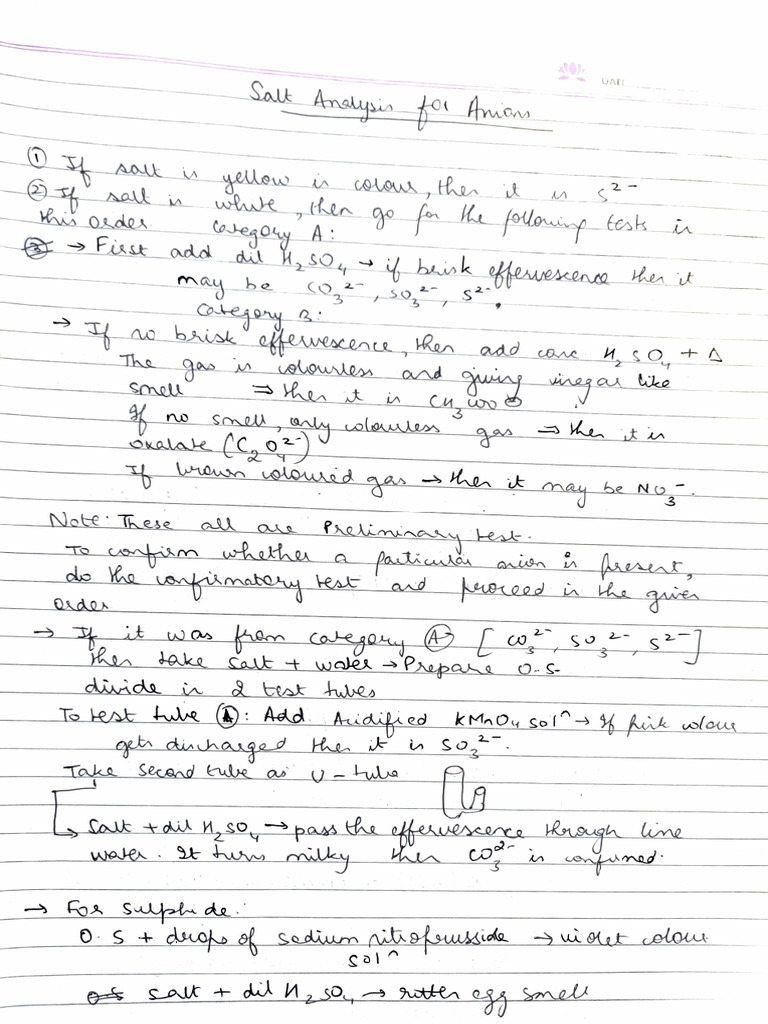 DATE
Salt Analysis for Anions
① If salt is yellow in colour, then it is S²⁻
② If salt is white, then go for the following tests in
this order Category A:
→ First add dil H₂SO₄ → if brisk effervescence then it
may be CO₃²⁻, SO₃²⁻, S²⁻.
Category B:
→ If no brisk effervescence, then add conc H₂SO₄ + Δ
The gas is colourless and giving vinegar like
smell ⇒ then it is CH₃COO⊖
If no smell, only colourless gas ⇒ then it is
oxalate (C₂O₄²⁻)
If brown coloured gas → then it may be NO₃⁻.
Note: These all are Preliminary test.
To confirm whether a particular anion is present,
do the confirmatory test and proceed in the given
order
→ If it was from category Ⓐ [CO₃²⁻, SO₃²⁻, S²⁻]
then take salt + water → Prepare O.S
divide in 2 test tubes
To test tube Ⓐ: Add Acidified KMnO₄ solⁿ → If pink colour
gets discharged then it is SO₃²⁻.
Take second tube as U-tube
Salt + dil H₂SO₄ → pass the effervescence through lime
water. It turns milky then CO₃²⁻ is confirmed.
→ For sulphide.
O.S + drops of sodium nitroprusside → violet colour
solⁿ
salt + dil H₂SO₄ → rotten egg smell